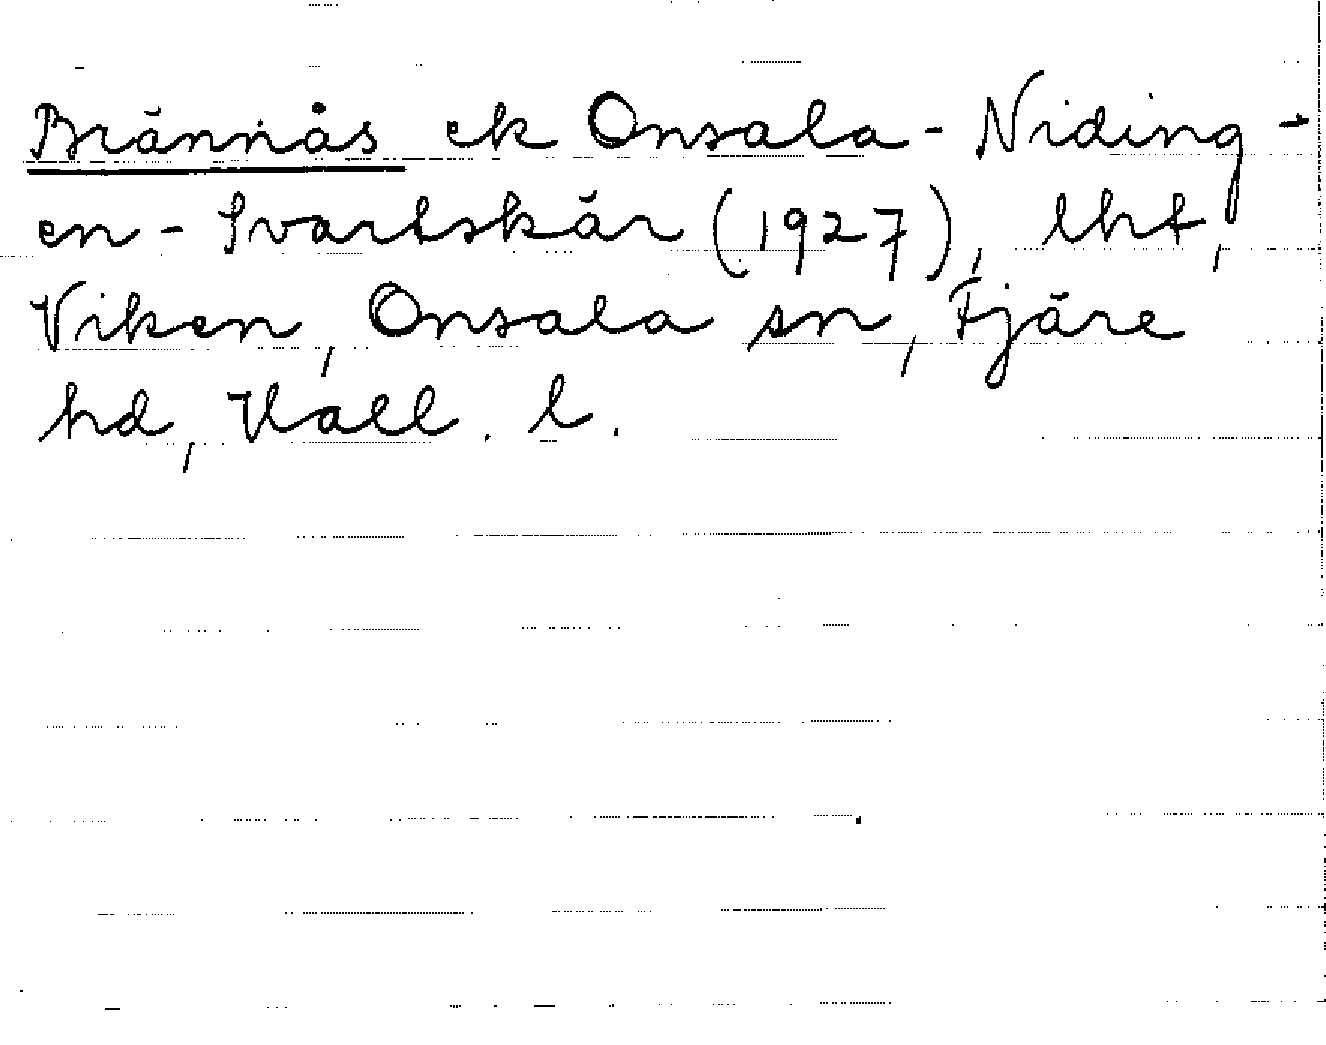 Brännås ek Onsala - Niding-
en - Svartskär (1927), lht,
Viken, Onsala sn, Fjäre
hd, Hall. l.